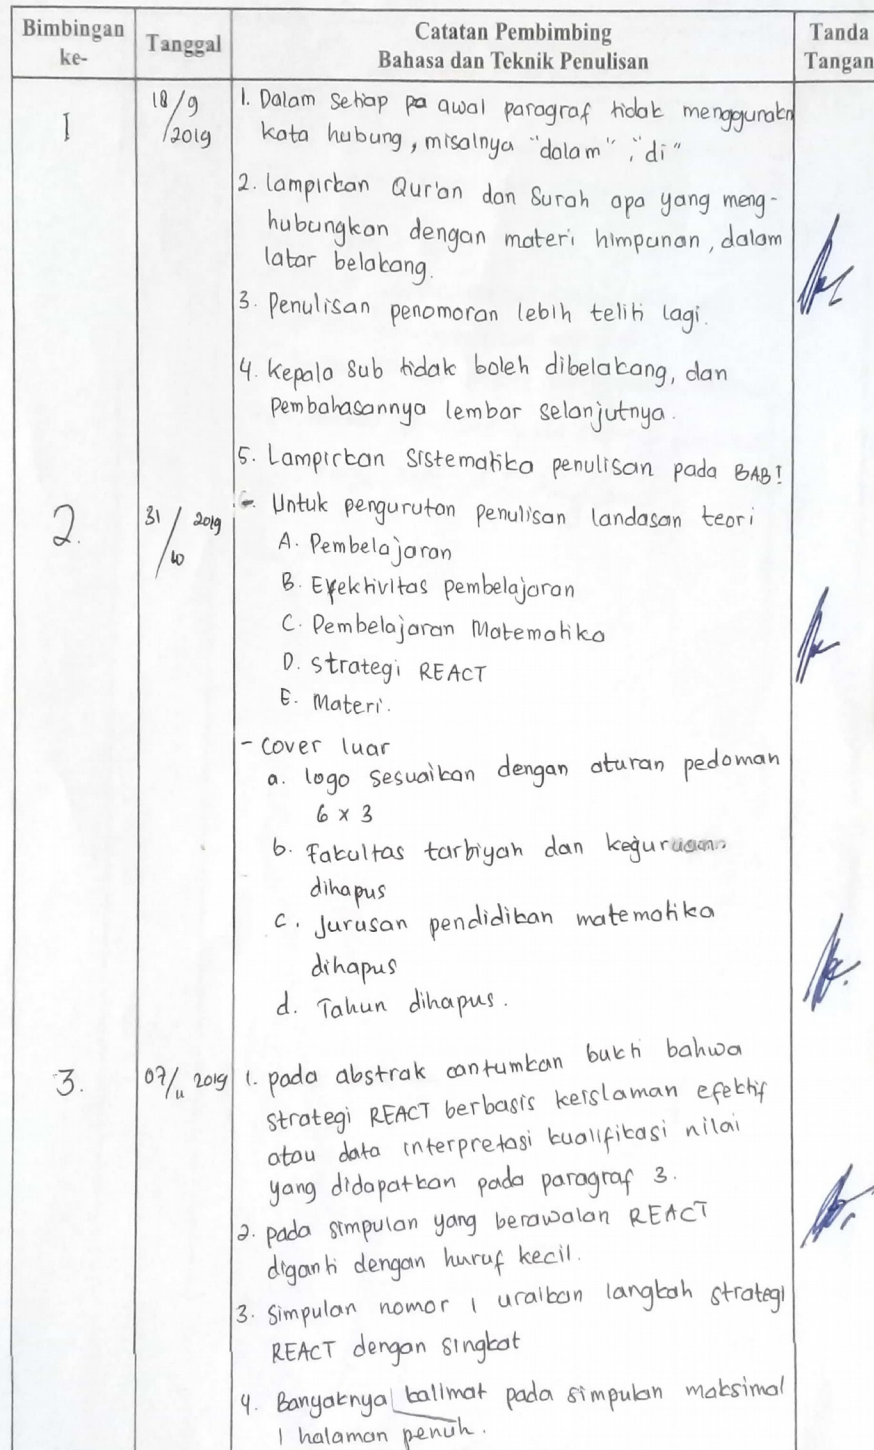 Bimbingan ke-
Tanggal
Catatan Pembimbing
Bahasa dan Teknik Penulisan
Tanda Tangan
1
18/9 2019
1. Dalam setiap pa awal paragraf tidak menggunakn
kata hubung, misalnya "dalam", "di"
2. lampirkan Qur'an dan Surah apa yang meng-
hubungkan dengan materi himpunan, dalam
latar belakang.
3. Penulisan penomoran lebih teliti lagi.
4. Kepala sub tidak boleh dibelakang, dan
Pembahasannya lembar selanjutnya.
5. Lampirkan sistematika penulisan pada BAB I
2.
31/10 2019
- Untuk pengurutan penulisan landasan teori
A. Pembelajaran
B. Efektivitas pembelajaran
C. Pembelajaran Matematika
D. Strategi REACT
E. Materi.
- Cover luar
a. logo sesuaikan dengan aturan pedoman
6 x 3
b. Fakultas tarbiyah dan keguruan
dihapus
c. Jurusan pendidikan matematika
dihapus
d. Tahun dihapus.
3.
07/11 2019
1. pada abstrak cantumkan bukti bahwa
strategi REACT berbasis keislaman efektif
atau data interpretasi kualifikasi nilai
yang didapatkan pada paragraf 3.
2. pada simpulan yang berawalan REACT
diganti dengan huruf kecil.
3. Simpulan nomor 1 uraikan langkah strategi
REACT dengan singkat
4. Banyaknya kalimat pada simpulan maksimal
1 halaman penuh.